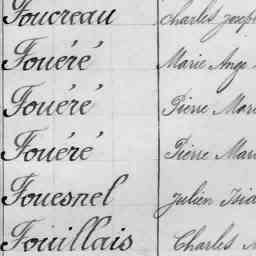 Foucreau Charles Josep
Fouéré Marie Ange
Fouéré Pierre Mari
Fouéré Pierre Mari
Fouesnel Julien Isid
Fouillais Charles